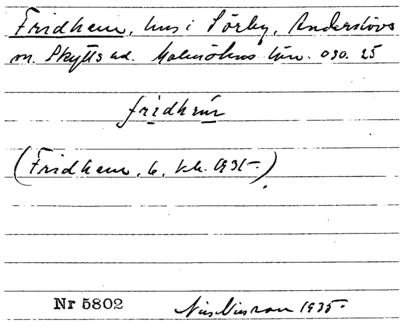 Fridhem, hus i Sörby, Anderslövs
sn. Skytts hd. Malmöhus län. 030. 25
fridhem
(Fridhem, 6, 1931.)
Nr 5802
Nils Nilsson 1935.